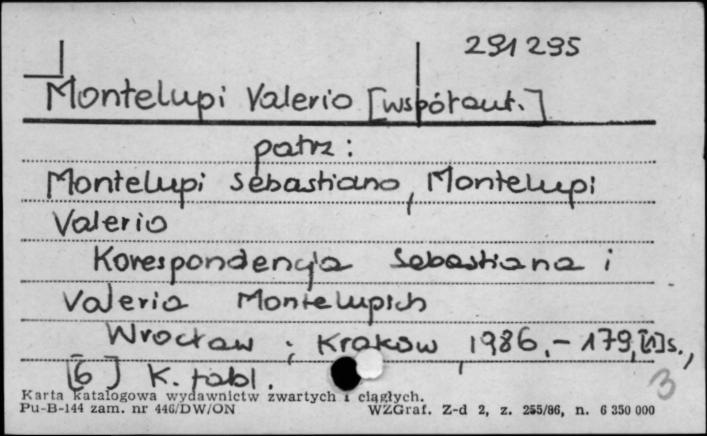 291295
Montelupi Valerio [współaut.]
patrz:
Montelupi Sebastiano, Montelupi
Valerio
Korespondencja Sebastiana i
Valeria Montelupich
Wrocław ; Kraków, 1986. - 179, [1] s.,
[6] k. tabl.
3
Karta katalogowa wydawnictw zwartych i ciągłych.
Pu-B-144 zam. nr 446/DW/ON WZGraf. Z-d 2, z. 255/86, n. 6 350 000